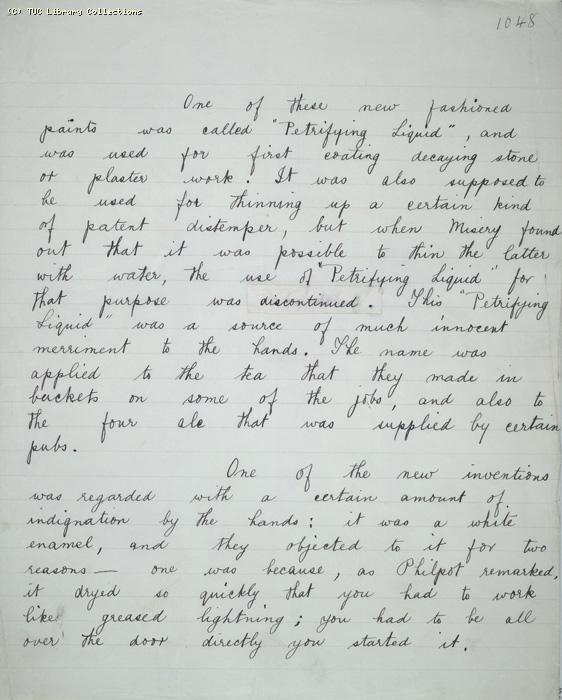 (C) TUC Library Collections
1048
One of these new fashioned
paints was called "Petrifying Liquid", and
was used for first coating decaying stone
or plaster work. It was also supposed to
be used for thinning up a certain kind
of patent distemper, but when Misery found
out that it was possible to thin the latter
with water, the use of "Petrifying Liquid" for
that purpose was discontinued. This "Petrifying
Liquid" was a source of much innocent
merriment to the hands. The name was
applied to the tea that they made in
buckets on some of the jobs, and also to
the four ale that was supplied by certain
pubs.
One of the new inventions
was regarded with a certain amount of
indignation by the hands: it was a white
enamel, and they objected to it for two
reasons— one was because, as Philpot remarked,
it dryed so quickly that you had to work
like greased lightning; you had to be all
over the door directly you started it.